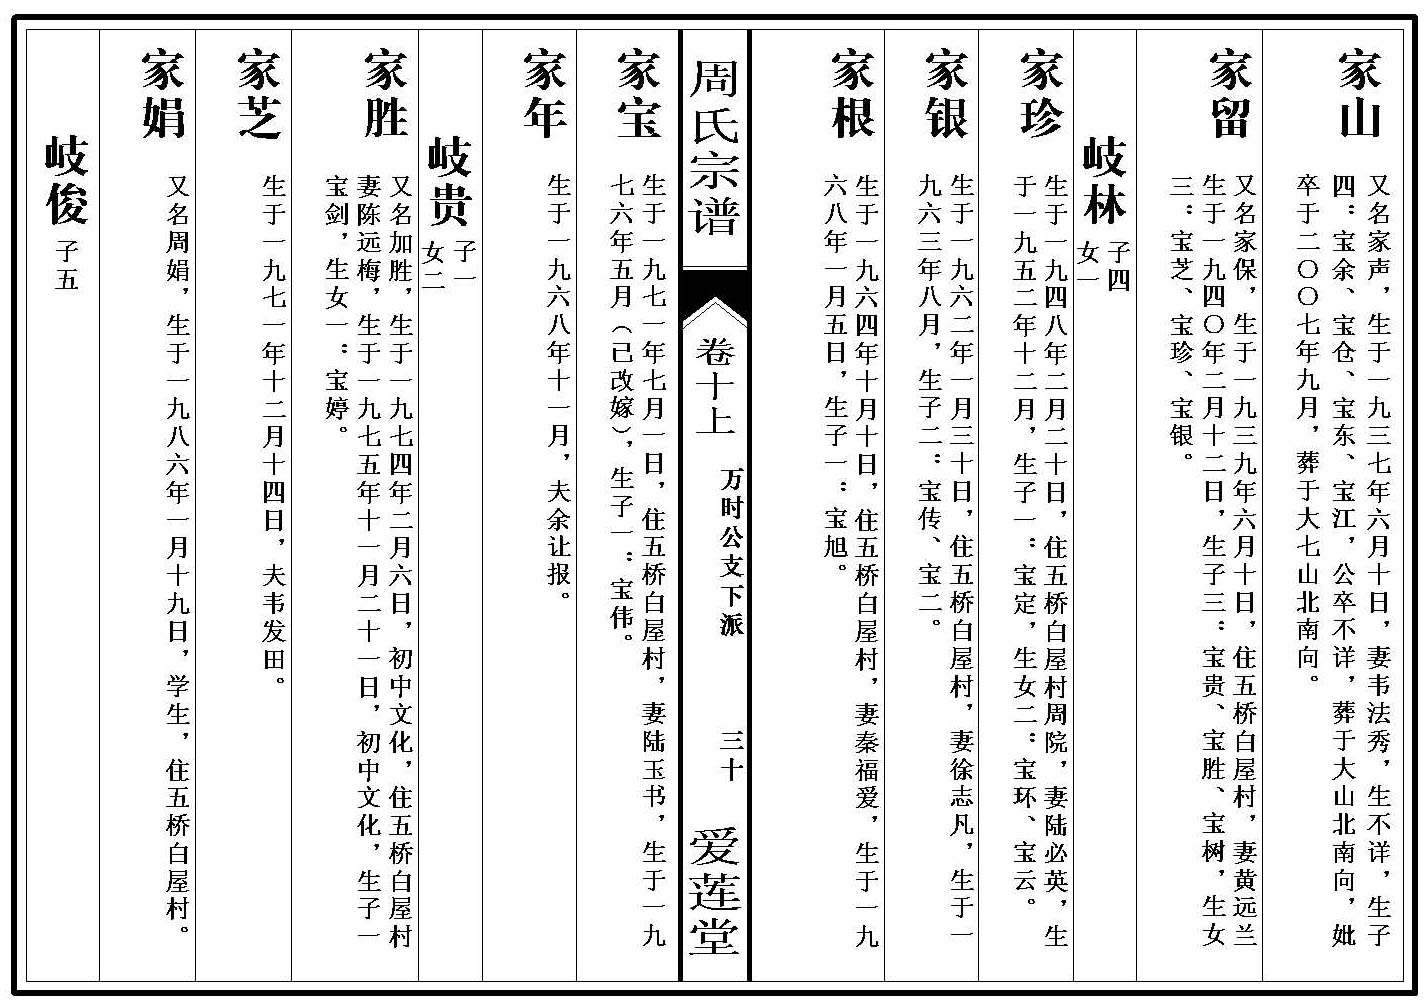 家山
又名家声，生于一九三七年六月十日，妻韦法秀，生不详，生子
四：宝余、宝仓、宝东、宝江，公卒不详，葬于大山北南向，妣
卒于二〇〇七年九月，葬于大七山北南向。
家留
又名家保，生于一九三九年六月十日，住五桥白屋村，妻黄远兰
生于一九四〇年二月十二日，生子三：宝贵、宝胜、宝树，生女
三：宝芝、宝珍、宝银。
岐林
子四
女一
家珍
生于一九四八年二月二十日，住五桥白屋村周院，妻陆必英，生
于一九五二年十二月，生子一：宝定，生女二：宝环、宝云。
家银
生于一九六二年一月三十日，住五桥白屋村，妻徐志凡，生于一
九六三年八月，生子二：宝传、宝二。
家根
生于一九六四年十月十日，住五桥白屋村，妻秦福爱，生于一九
六八年一月五日，生子一：宝旭。
周氏宗谱
卷十上
万时公支下派
三十
爱莲堂
家宝
生于一九七一年七月一日，住五桥白屋村，妻陆玉书，生于一九
七六年五月（已改嫁），生子一：宝伟。
家年
生于一九六八年十一月，夫余让报。
岐贵
子一
女二
家胜
又名加胜，生于一九七四年二月六日，初中文化，住五桥白屋村
妻陈远梅，生于一九七五年十一月二十一日，初中文化，生子一
宝剑，生女一：宝婷。
家芝
生于一九七一年十二月十四日，夫韦发田。
家娟
又名周娟，生于一九八六年一月十九日，学生，住五桥白屋村。
岐俊
子五